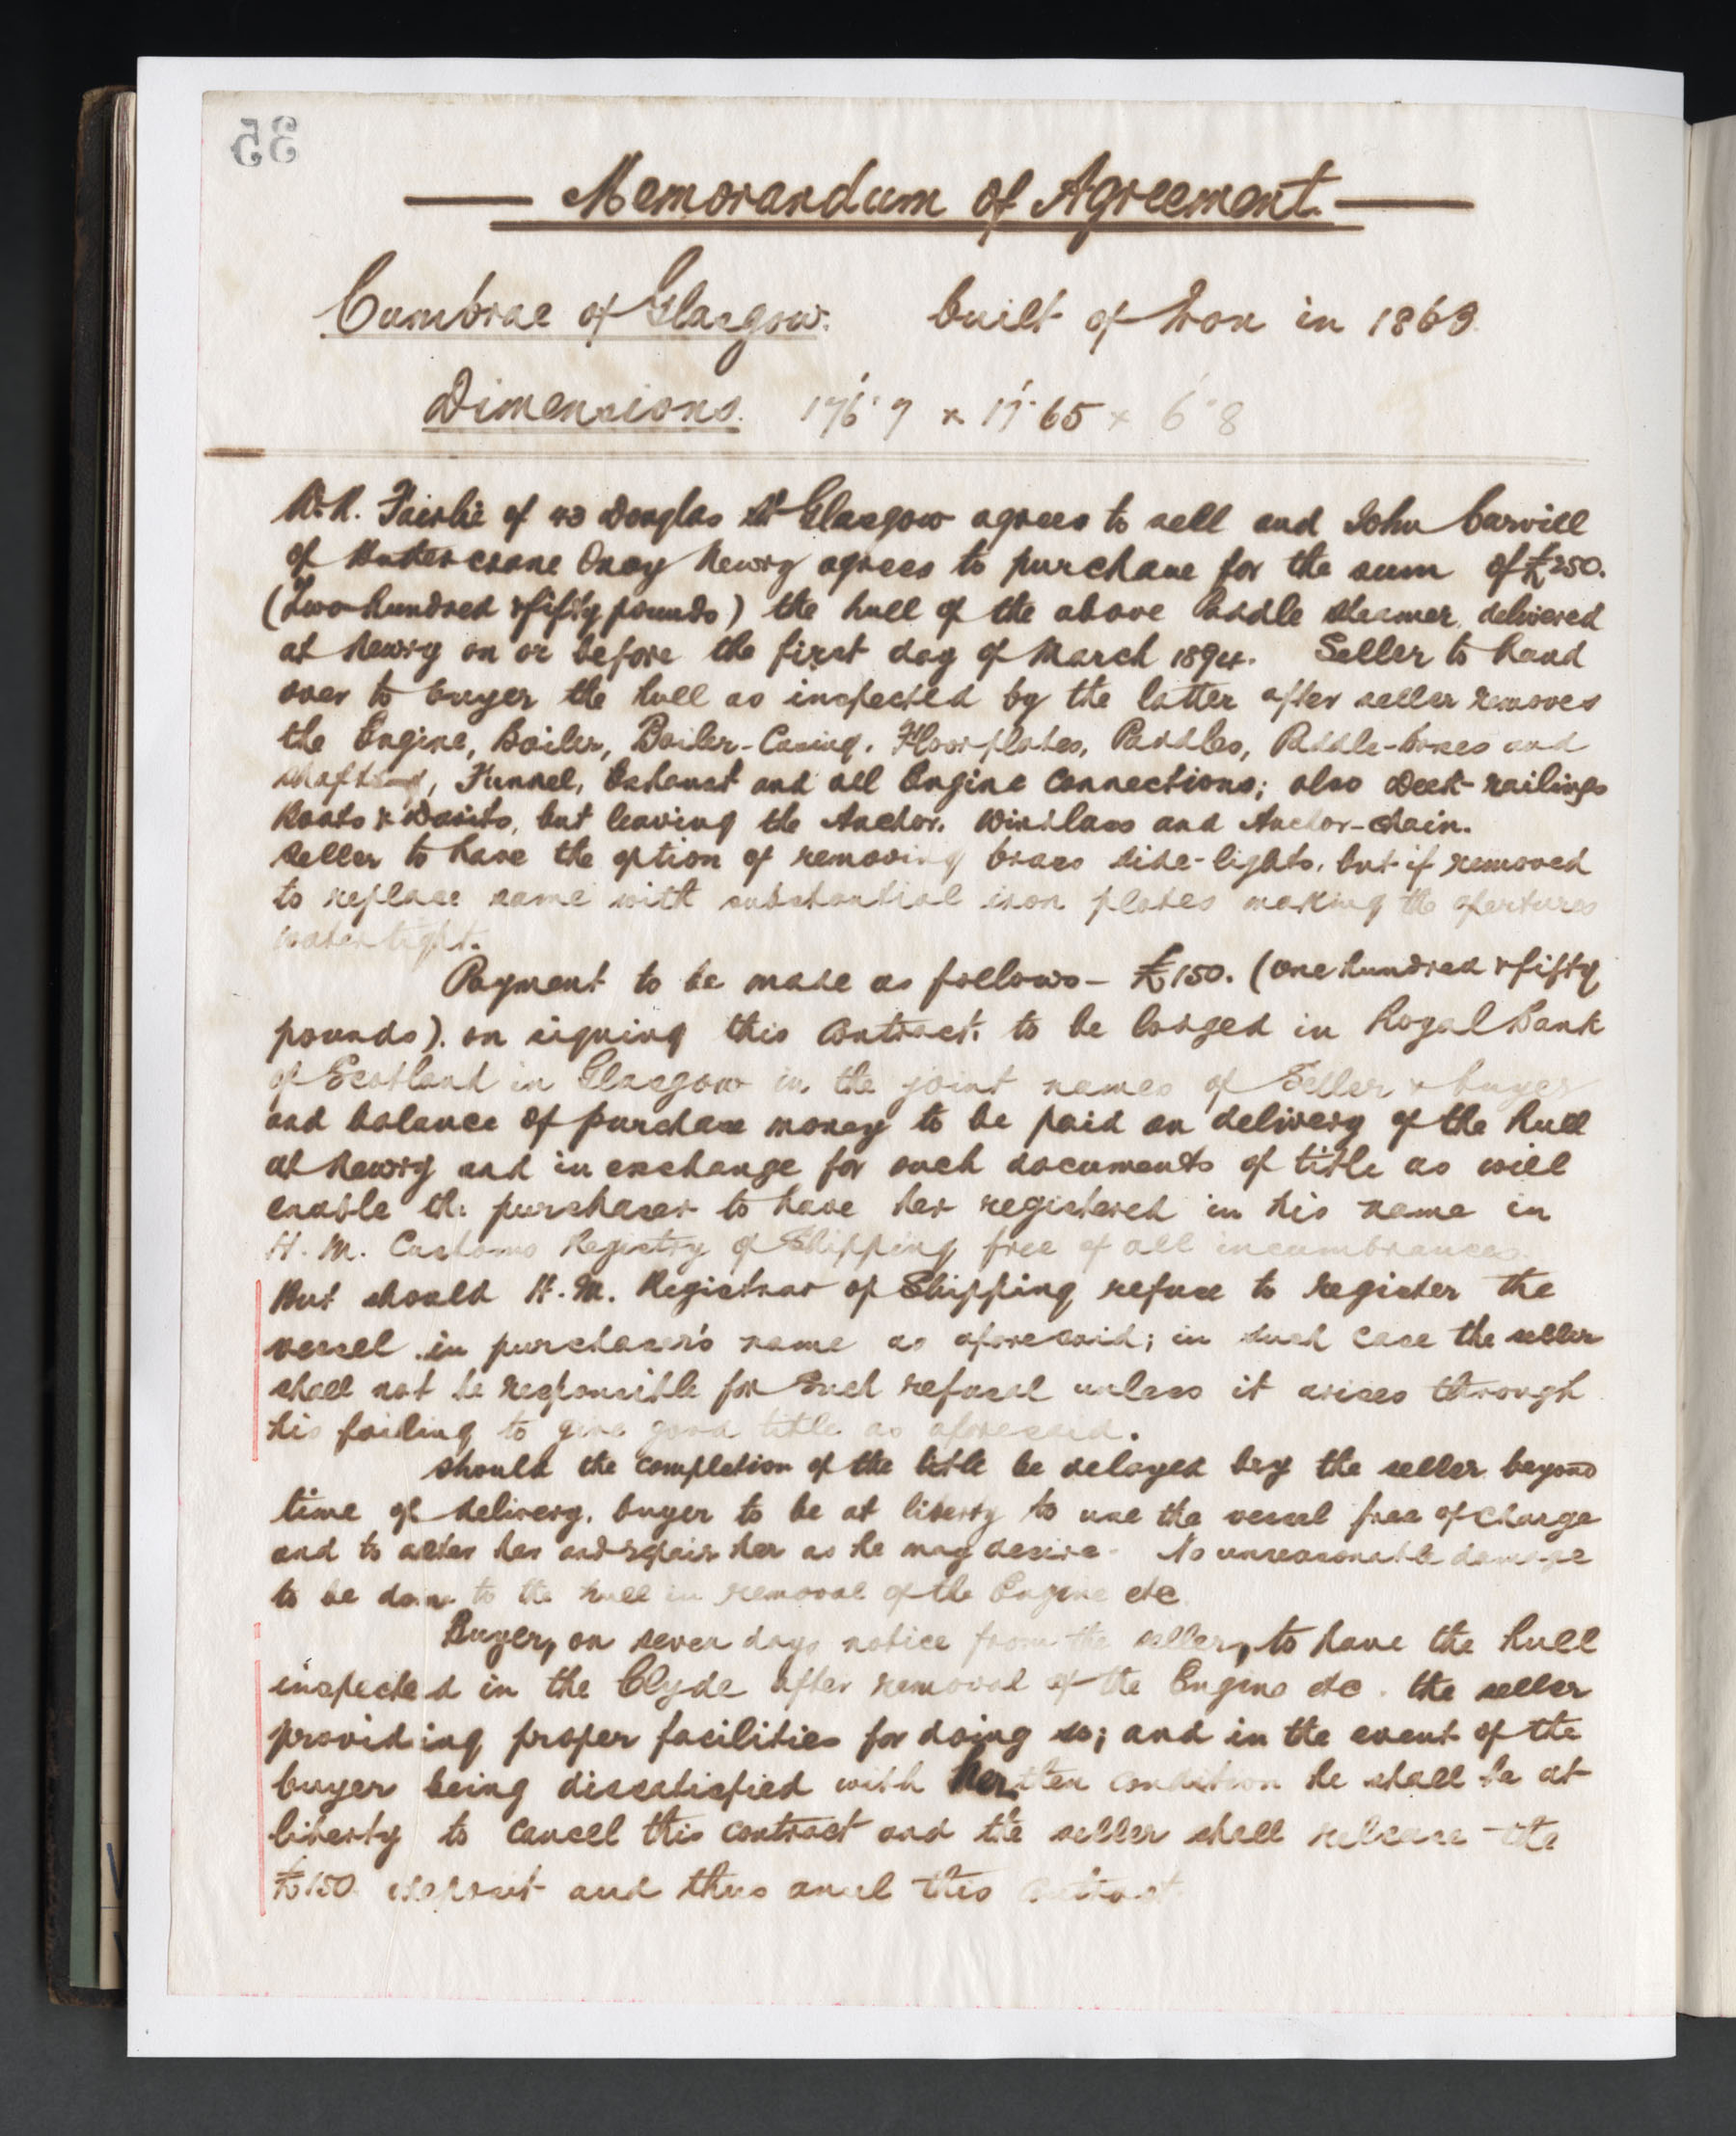 35
Memorandum of Agreement.
Cumbrae of Glasgow. built of Iron in 1863.
Dimensions. 176'.7 x 17'.65 x 6'.8
Fairlie of 43 Douglas St Glasgow agrees to sell and John Carvill
of Quay Newry agrees to purchase for the sum of £250.
(Two hundred & fifty pounds) the hull of the above Paddle steamer, delivered
at Newry on or before the first day of March 1894. Seller to hand
over to buyer the hull as inspected by the latter after seller removes
the Engine, Boiler, Boiler-Casing, Floorplates, Paddles, Paddle-boxes and
shafting, Funnel, Exhaust and all Engine Connections; also Deck-railings
Boats & Davits, but leaving the Anchor, Windlass and Anchor-chain.
Seller to have the option of removing brass side-lights, but if removed
to replace same with substantial iron plates making the apertures
watertight.
Payment to be made as follows - £150. (one hundred & fifty
pounds). on signing this contract, to be lodged in Royal Bank
of Scotland in Glasgow in the joint names of Seller & buyer
and balance of purchase money to be paid on delivery of the hull
at Newry and in exchange for such documents of title as will
enable the purchaser to have her registered in his name in
H. M. Customs Registry of Shipping free of all incumbrances.
But should H. M. Registrar of Shipping refuse to register the
vessel in purchaser's name as aforesaid; in such case the seller
shall not be responsible for such refusal unless it arises through
his failing to give good title as aforesaid.
Should the completion of the title be delayed by the seller beyond
time of delivery, buyer to be at liberty to use the vessel free of charge
and to alter her and repair her as he may desire. No unreasonable damage
to be done to the hull in removal of the Engine etc
Buyer, on seven days notice from the seller, to have the hull
inspected in the Clyde after removal of the Engine etc. the seller
providing proper facilities for doing so; and in the event of the
buyer being dissatisfied with her then condition he shall be at
liberty to cancel this contract and the seller shall release the
£150 deposit and thus anul this contract.